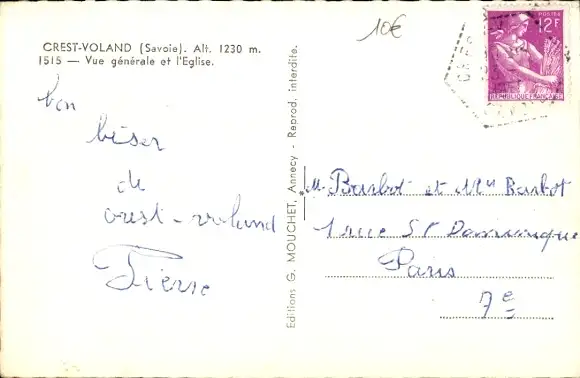 10€
CREST-VOLAND (Savoie). Alt. 1230 m.
1515 — Vue générale et l'Eglise.
bon
béser
de
crest-voland
Pierre
Editions G. MOUCHET, Annecy - Reprod. interdite.
POSTES
12F
REPUBLIQUE FRANÇAISE
CREST
M. Barbot et Mme Barbot
1 rue St Dominique
Paris
7e